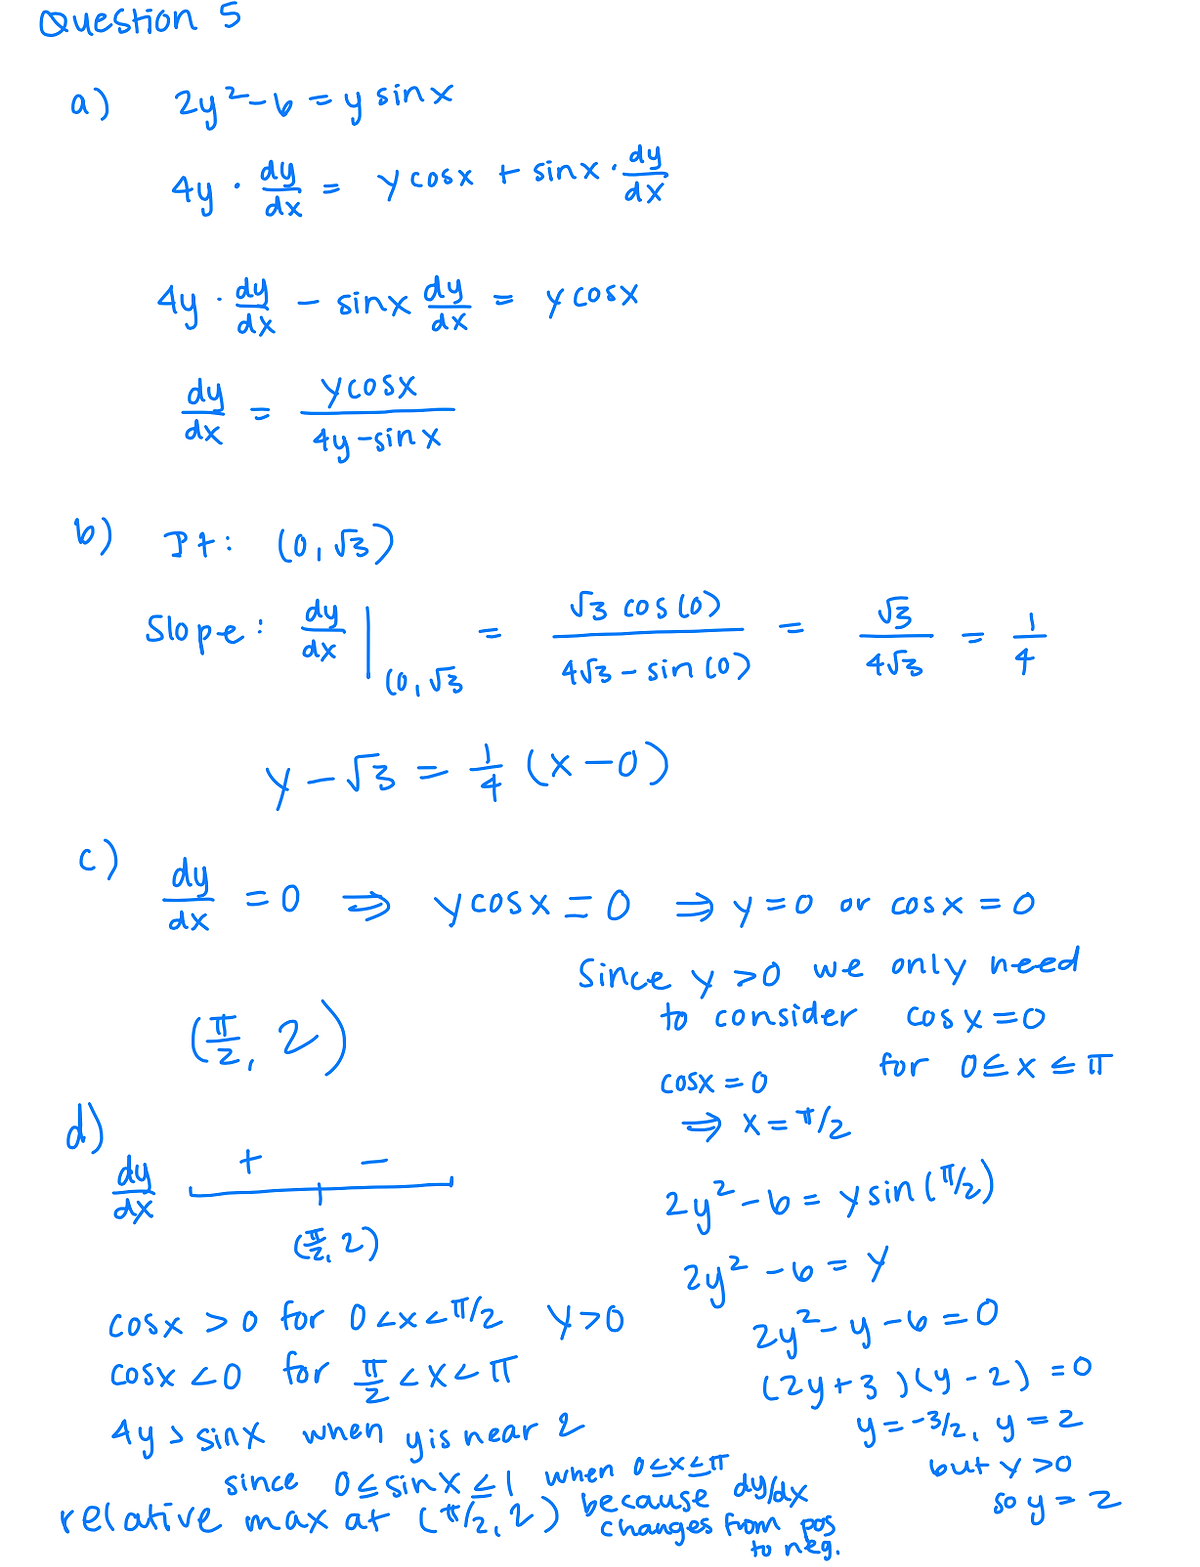 Question 5
a) 2y² - 6 = y sin x
4y · dy/dx = y cos x + sin x · dy/dx
4y · dy/dx - sin x dy/dx = y cos x
dy/dx = y cos x / 4y - sin x
b) Pt: (0, √3)
Slope: dy/dx |(0, √3 = √3 cos(0) / 4√3 - sin(0) = √3 / 4√3 = 1/4
y - √3 = 1/4 (x - 0)
c) dy/dx = 0 ⇒ y cos x = 0 ⇒ y = 0 or cos x = 0
Since y > 0 we only need
to consider cos x = 0
for 0 ≤ x ≤ π
cos x = 0
⇒ x = π/2
2y² - 6 = y sin(π/2)
2y² - 6 = y
2y² - y - 6 = 0
(2y + 3)(y - 2) = 0
y = -3/2, y = 2
but y > 0
so y = 2
(π/2, 2)
d) dy/dx + -
(π/2, 2)
cos x > 0 for 0 < x < π/2 y > 0
cos x < 0 for π/2 < x < π
4y > sin x when y is near 2
since 0 ≤ sin x ≤ 1 when 0 ≤ x ≤ π
relative max at (π/2, 2) because dy/dx
changes from pos
to neg.